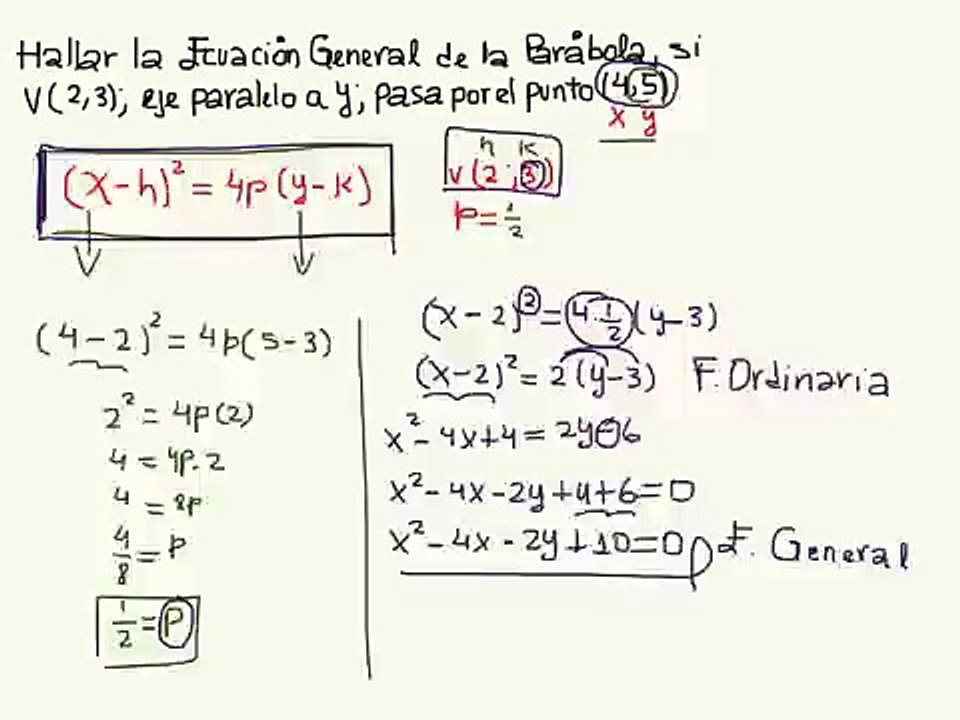 Hallar la Ecuación General de la Parábola, si
V(2,3), eje paralelo a y, pasa por el punto (4,5)
x y
(x-h)² = 4p(y-k)
h k
V(2,3)
p=1/2
(4-2)² = 4p(5-3)
2² = 4p(2)
4 = 4p.2
4 = 8p
4/8 = p
1/2 = p
(x-2)² = 4.1/2(y-3)
(x-2)² = 2(y-3) F. Ordinaria
x²-4x+4 = 2y-6
x²-4x-2y+4+6=0
x²-4x-2y+10=0 F. General